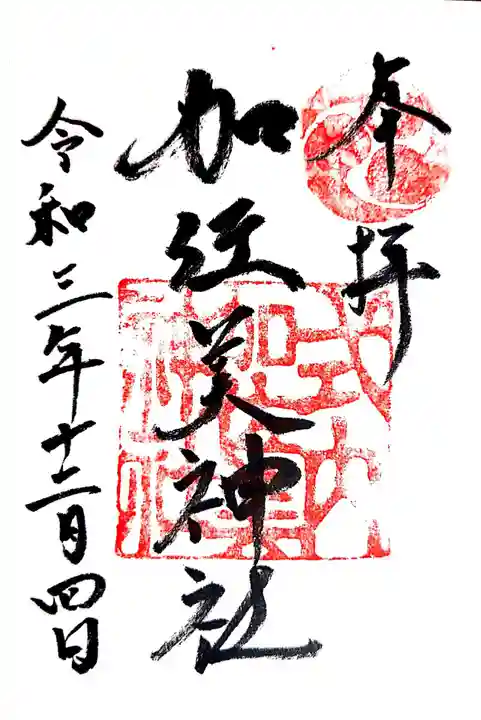 奉拝
加佐美神社
令和三年十二月四日